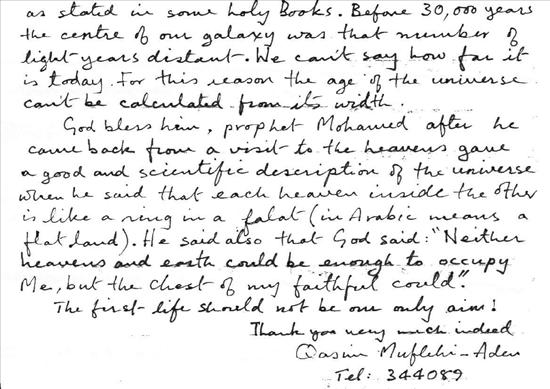 as stated in some holy Books. Before 30,000 years
the centre of our galaxy was that number of
light-years distant. We can't say how far it
is today. For this reason the age of the universe
can't be calculated from its width.
God bless him, prophet Mohamed after he
came back from a visit to the heavens gave
a good and scientific description of the universe
when he said that each heaven inside the other
is like a ring in a falat (in Arabic means a
flat land). He said also that God said: "Neither
heavens and earth could be enough to occupy
Me, but the chest of my faithful could".
The first life should not be our only aim!
Thank you very much indeed
Qasim Muflehi - Aden
Tel: 344089